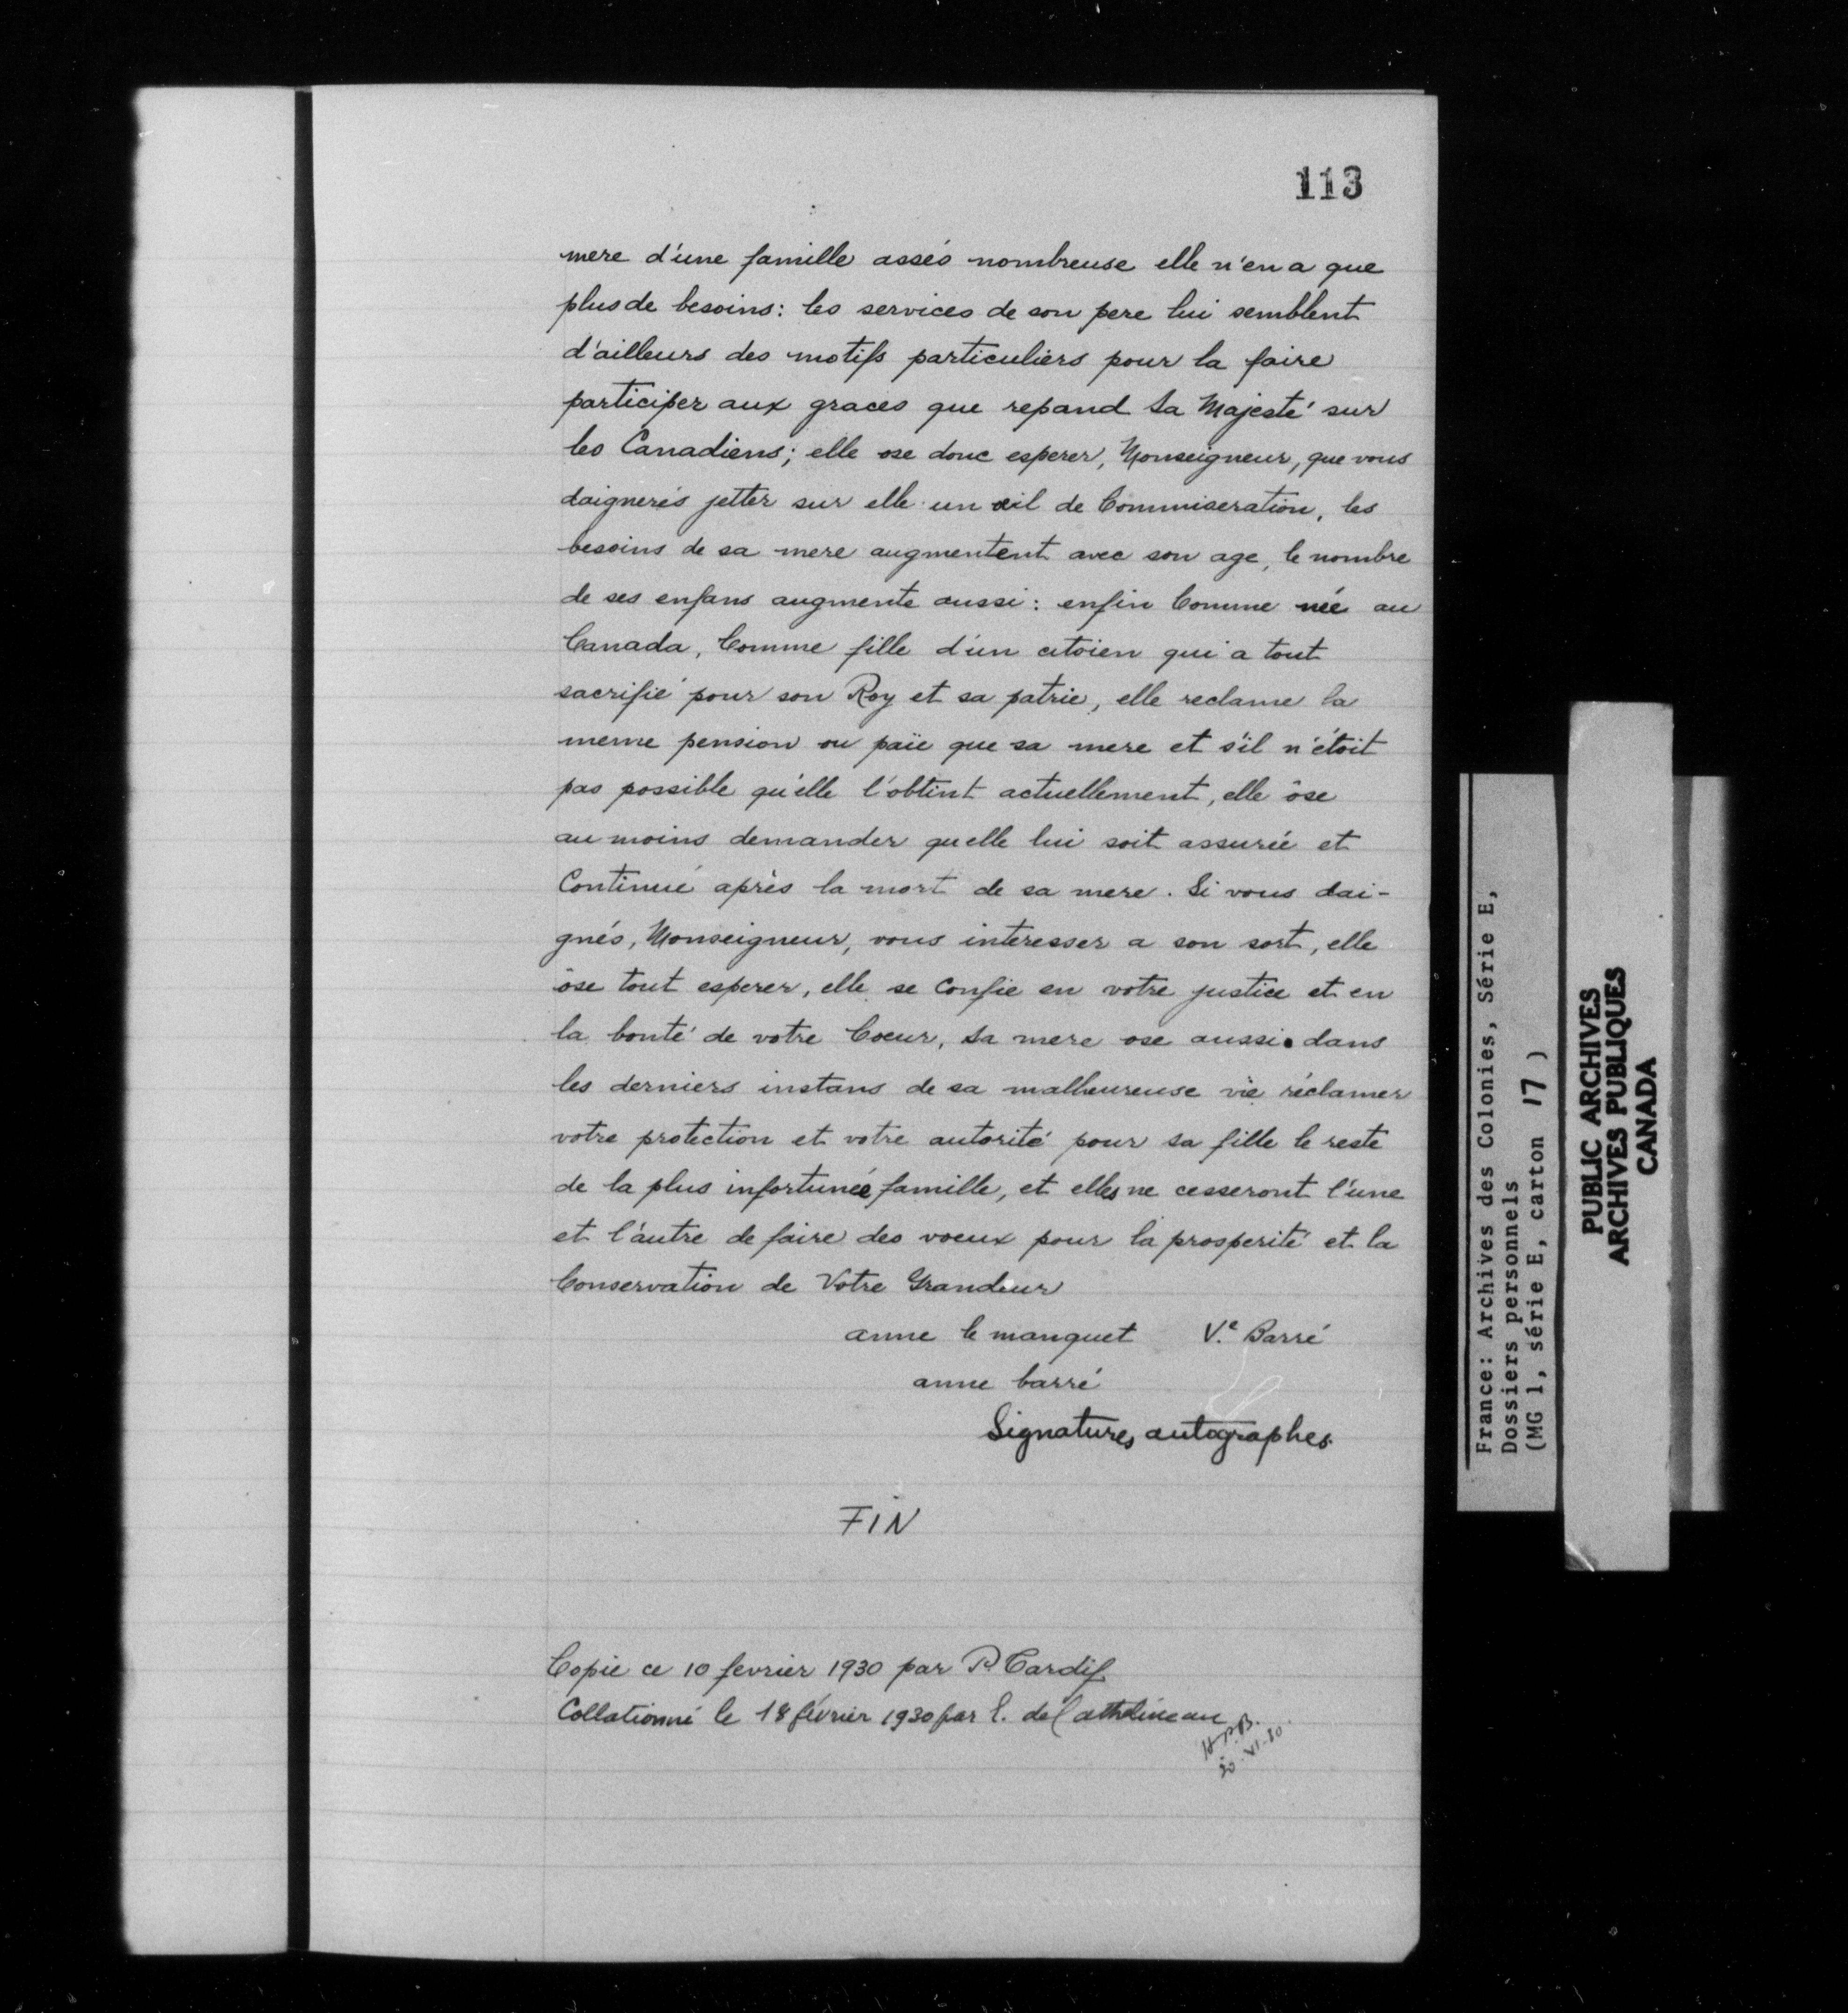 113
mere d'une famille assés nombreuse elle n'en a que
plus de besoins: les services de son pere lui semblent
d'ailleurs des motifs particuliers pour la faire
participer aux graces que repand Sa Majesté sur
les Canadiens; elle ose donc esperer, Monseigneur, que vous
daignerés jetter sur elle un œil de Commiseration, les
besoins de sa mere augmentent avec son age, le nombre
de ses enfans augmente aussi: enfin Comme née au
Canada, Comme fille d'un citoien qui a tout
sacrifié pour son Roy et sa patrie, elle reclame la
meme pension ou païe que sa mere et s'il n'étoit
pas possible qu'elle l'obtint actuellement, elle ôse
au moins demander qu elle lui soit assurée et
Continué après la mort de sa mere. Si vous dai-
gnés, Monseigneur, vous interesser a son sort, elle
ôse tout esperer, elle se Confie en votre justice et en
la bonté de votre Coeur, Sa mere ose aussi dans
les derniers instans de sa malheureuse vie réclamer
votre protection et votre autorité pour sa fille le reste
de la plus infortunée famille, et elles ne cesseront l'une
et l'autre de faire des voeux pour la prosperité et la
Conservation de Votre Grandeur
anne le manquet V.e Barré
anne barré
Signatures autographes.
FIN
Copie ce 10 fevrier 1930 par P. Cardif
Collationné le 18 février 1930 par E. de Cathelineau
H.P.B.
France: Archives des Colonies, Série E,
Dossiers personnels
(MG 1, série E, carton 17)
PUBLIC ARCHIVES
ARCHIVES PUBLIQUES
CANADA